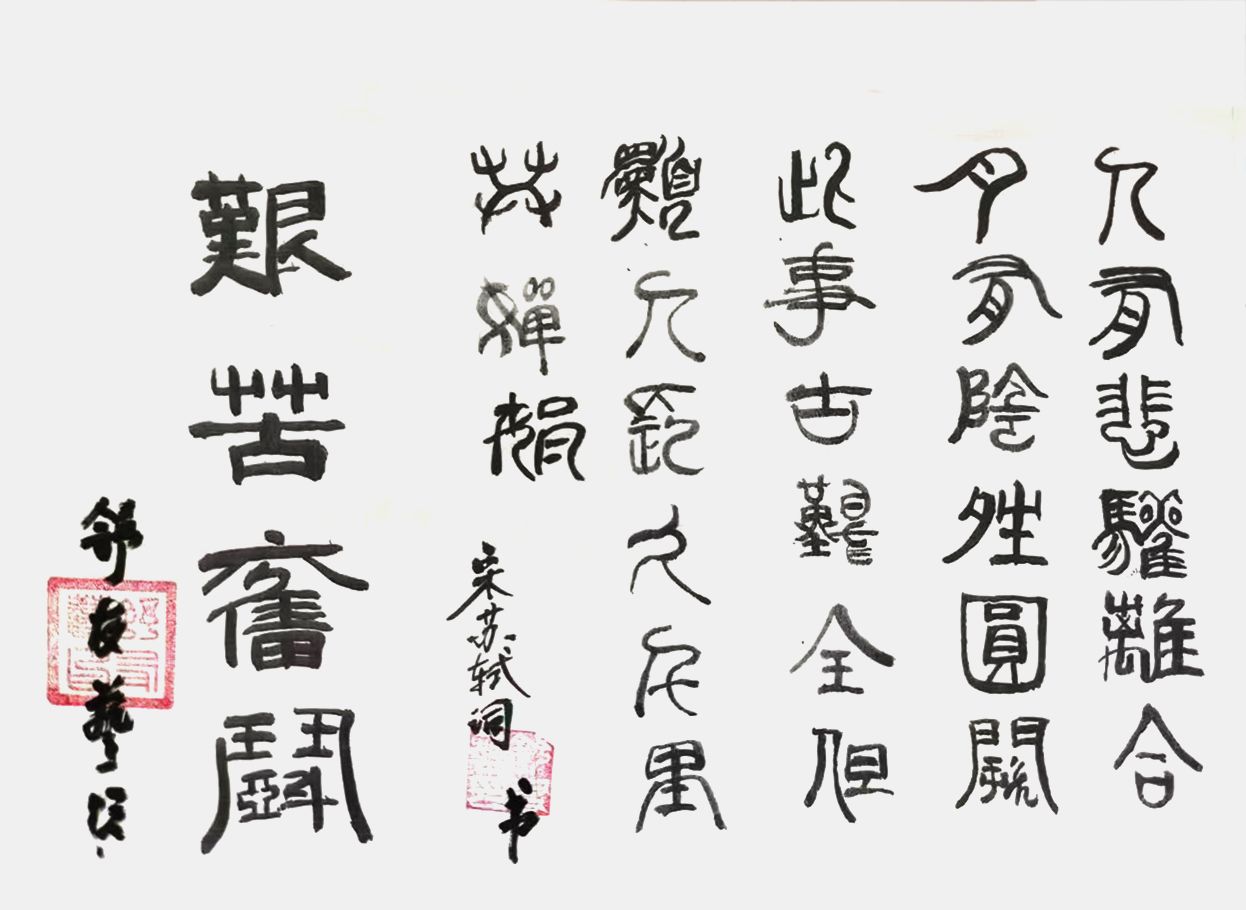 人有悲驩離合
月有陰夝圓闕
此事古難全但
願人長久千里
共嬋娟
宋苏轼词 书
艱苦奮鬭
友藝